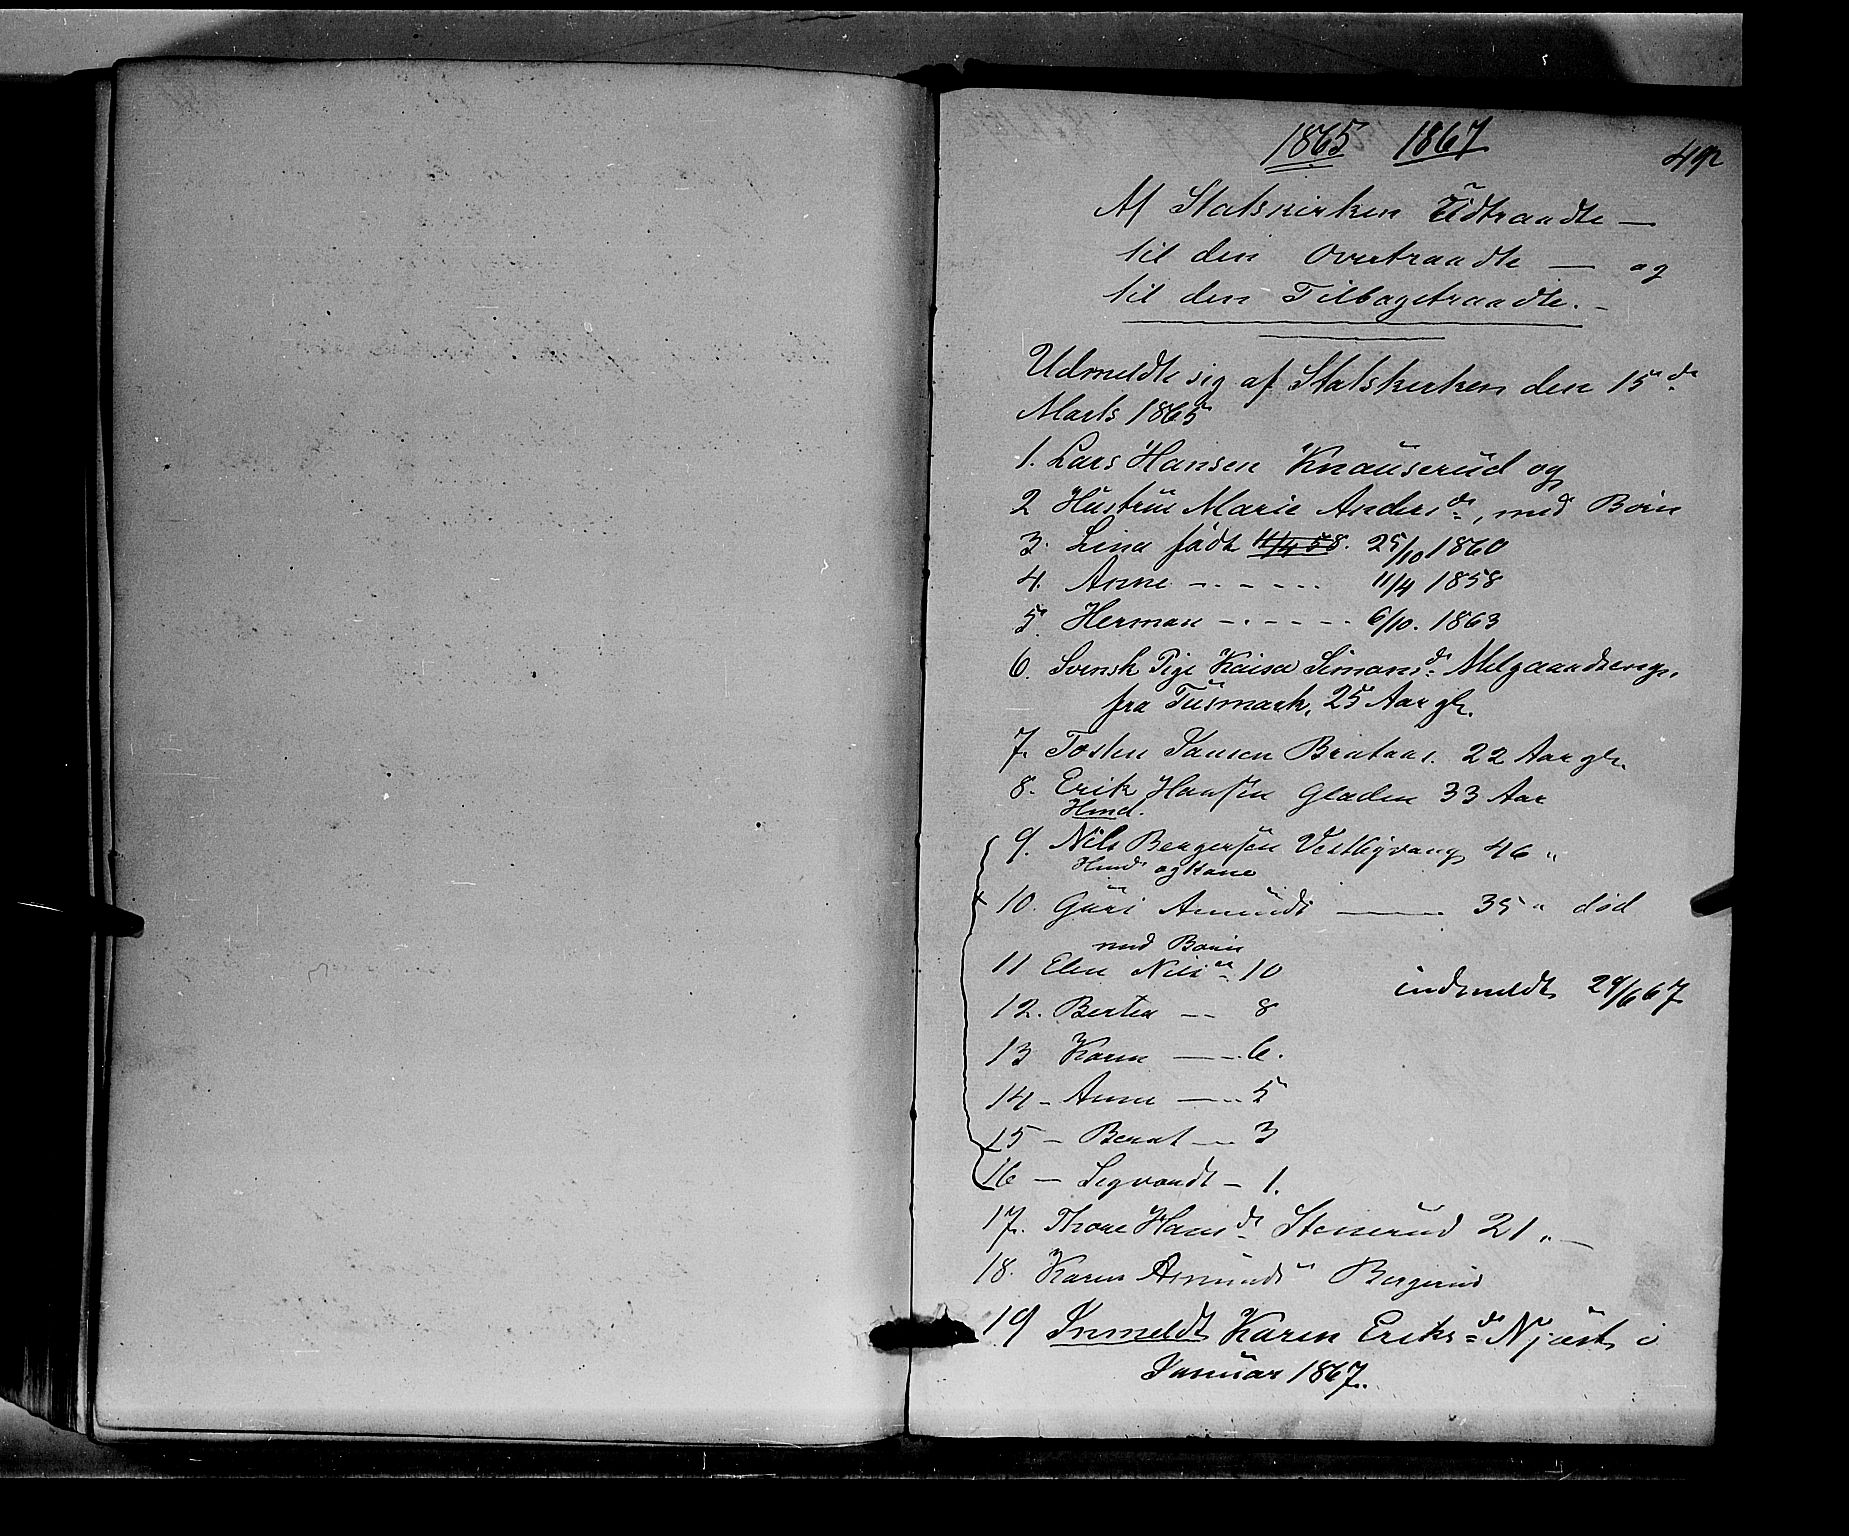 1865 1867
492
Af Statskirken Udtraadte —
til den Overtraadte — og
til den Tilbagetraadte. —
Udmeldte sig af Statskirken den 15de
Marts 1865
1. Lars Hansen Knauserud og
2 Hustrue Marie Andersdr, med Børn
3. Lina født 11/4 58. 25/10 1860
4. Anne - - - - - 11/4 1858
5. Herman - - - - - 6/10. 1863
6. Svensk Pige Kaisa Simonsdr
fra Fusmark, 25 Aar gl.
7. Tosten Jansen Brataas. 22 Aar gl.
8. Erik Hansen Gladen 33 Aar
9. Nils Bergersen Vestbyvang 46 "
Husm og Kone
10. Guri Amunds — 35 " død
med Børn
11 Elen Nils 10
indmeldt 29/6 67
12. Bertea — 8
13 Karen — 6.
14 - Anne — 5
15 - Bernt — 3
16 — Segvardt - 1.
17. Thore Hansdr Stenerud 21 " —
18. Karen Amunds Bergerud
19 Inmeldt Karen Eriksdr i
Januar 1867.